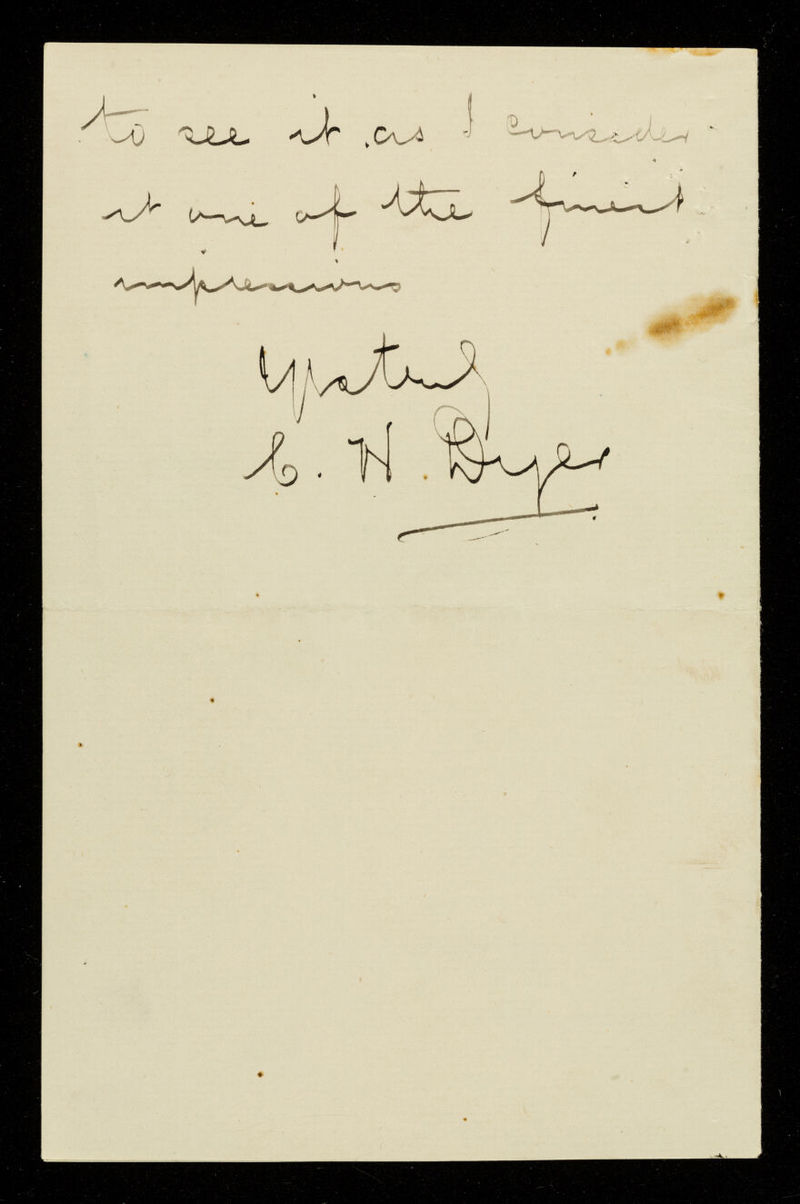 to see it as I consider
it one of the finest
impressions
Yrs truly
C. H. Dyer